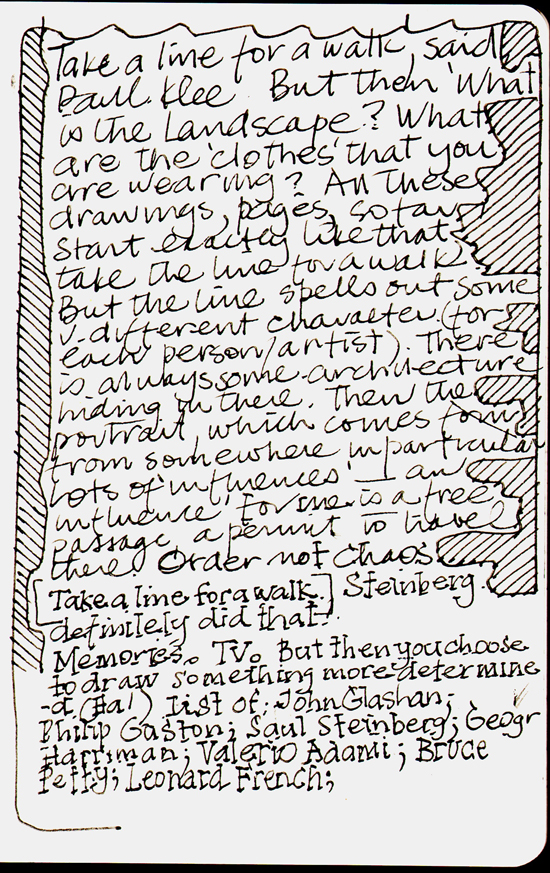 Take a line for a walk, said
Paul Klee But then 'What
is the Landscape? What
are the 'clothes' that you
are wearing? All these
drawings, pages, so far,
start exactly like that,
take the line for a walk.
But the line spells out some
v. different character. (for
each person/artist). There
is always some architecture
hiding in there. Then the
portrait, which comes from
from somewhere in particular
Lots of 'influences' — an
influence, for me is a free
passage, a permit to travel
there. Order not chaos.
[Take a line for a walk.] Steinberg
definitely did that.
Memories. TV. But then you choose
to draw something more determine
-d (Ha!) List of: John Glashan;
Philip Guston; Saul Steinberg; Geogr
Harriman; Valerio Adami; Bruce
Petty; Leonard French;